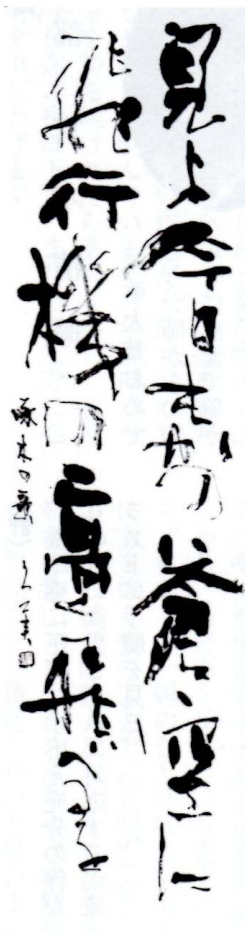 見よ今日も かの蒼空に
飛行機の高く飛へるを
啄木の歌